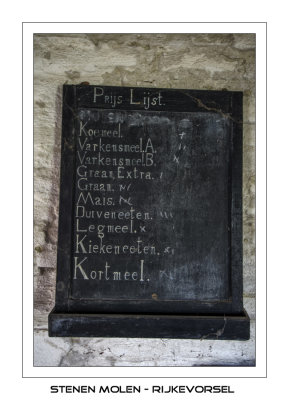 Prijs Lijst.
Koemeel.
Varkensmeel.A.
Varkensmeel.B.
Graan, Extra.
Graan.
Mais.
Duiveneeten.
Legmeel.
Kiekeneeten.
Kortmeel.
STENEN MOLEN - RIJKEVORSEL